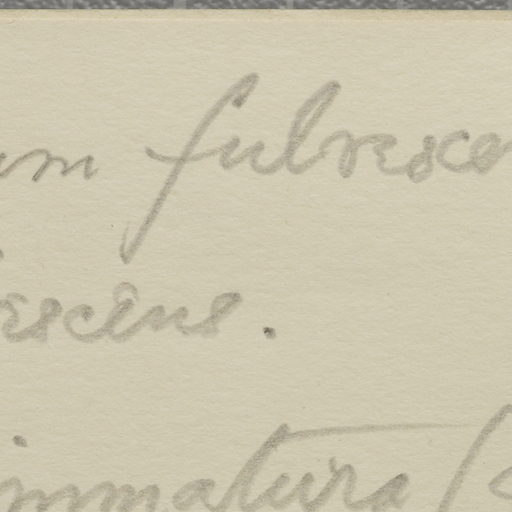 um fulvesce
escens.
immatura (